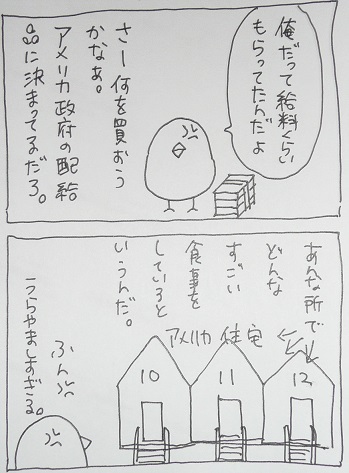 俺だって給料くらい
もらってたんだよ
さー何を買おう
かなぁ。
アメリカ政府の配給
品に決まってるだろ。
あんな所で
どんな
すごい
食事を
していると
いうんだ。
アメリカ住宅
12
11
10
ふん
うらやましすぎる。